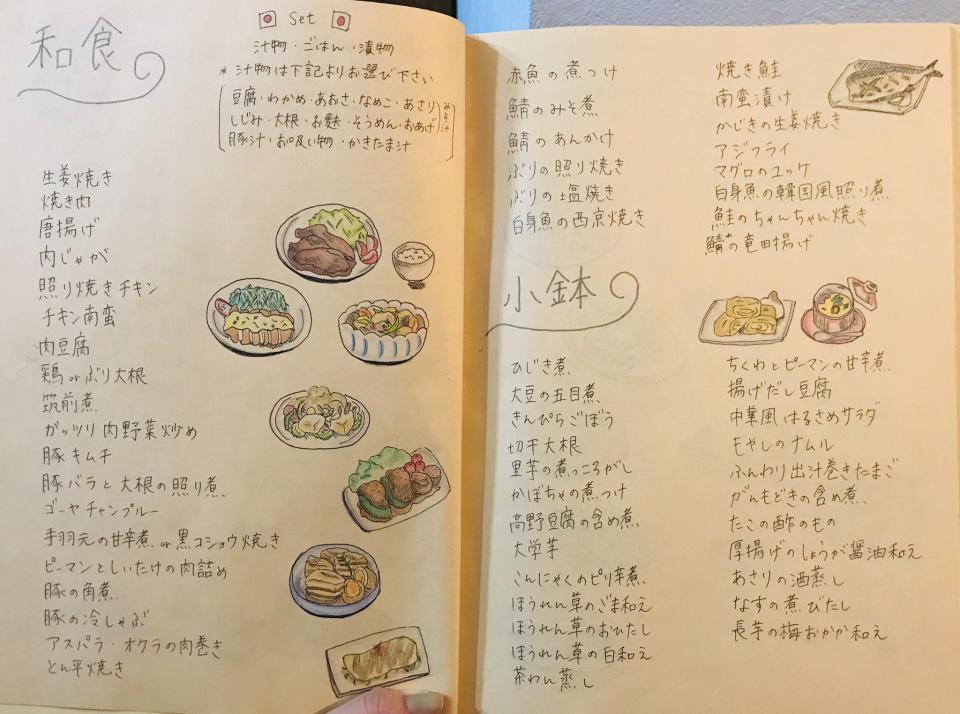 和食
Set
汁物・ごはん・漬物
* 汁物は下記よりお選び下さい
豆腐・わかめ・あおさ・なめこ・あさり
しじみ・大根・お麩・そうめん・おあげ
みそ汁
豚汁・お吸い物・かきたま汁
生姜焼き
焼き肉
唐揚げ
肉じゃが
照り焼きチキン
チキン南蛮
肉豆腐
鶏 or ぶり大根
筑前煮
ガッツリ肉野菜炒め
豚キムチ
豚バラと大根の照り煮
ゴーヤチャンプルー
手羽元の甘辛煮 or 黒コショウ焼き
ピーマンとしいたけの肉詰め
豚の角煮
豚の冷しゃぶ
アスパラ・オクラの肉巻き
とん平焼き
赤魚の煮つけ
鯖のみそ煮
鯖のあんかけ
ぶりの照り焼き
ぶりの塩焼き
白身魚の西京焼き
焼き鮭
南蛮漬け
かじきの生姜焼き
アジフライ
マグロのユッケ
白身魚の韓国風照り煮
鮭のちゃんちゃん焼き
鯖の竜田揚げ
小鉢
ひじき煮
大豆の五目煮
きんぴらごぼう
切干大根
里芋の煮っころがし
かぼちゃの煮つけ
高野豆腐の含め煮
大学芋
こんにゃくのピリ辛煮
ほうれん草のごま和え
ほうれん草のおひたし
ほうれん草の白和え
茶わん蒸し
ちくわとピーマンの甘辛煮
揚げだし豆腐
中華風はるさめサラダ
もやしのナムル
ふんわり出汁巻きたまご
がんもどきの含め煮
たこの酢のもの
厚揚げのしょうが醤油和え
あさりの酒蒸し
なすの煮びたし
長芋の梅おかか和え